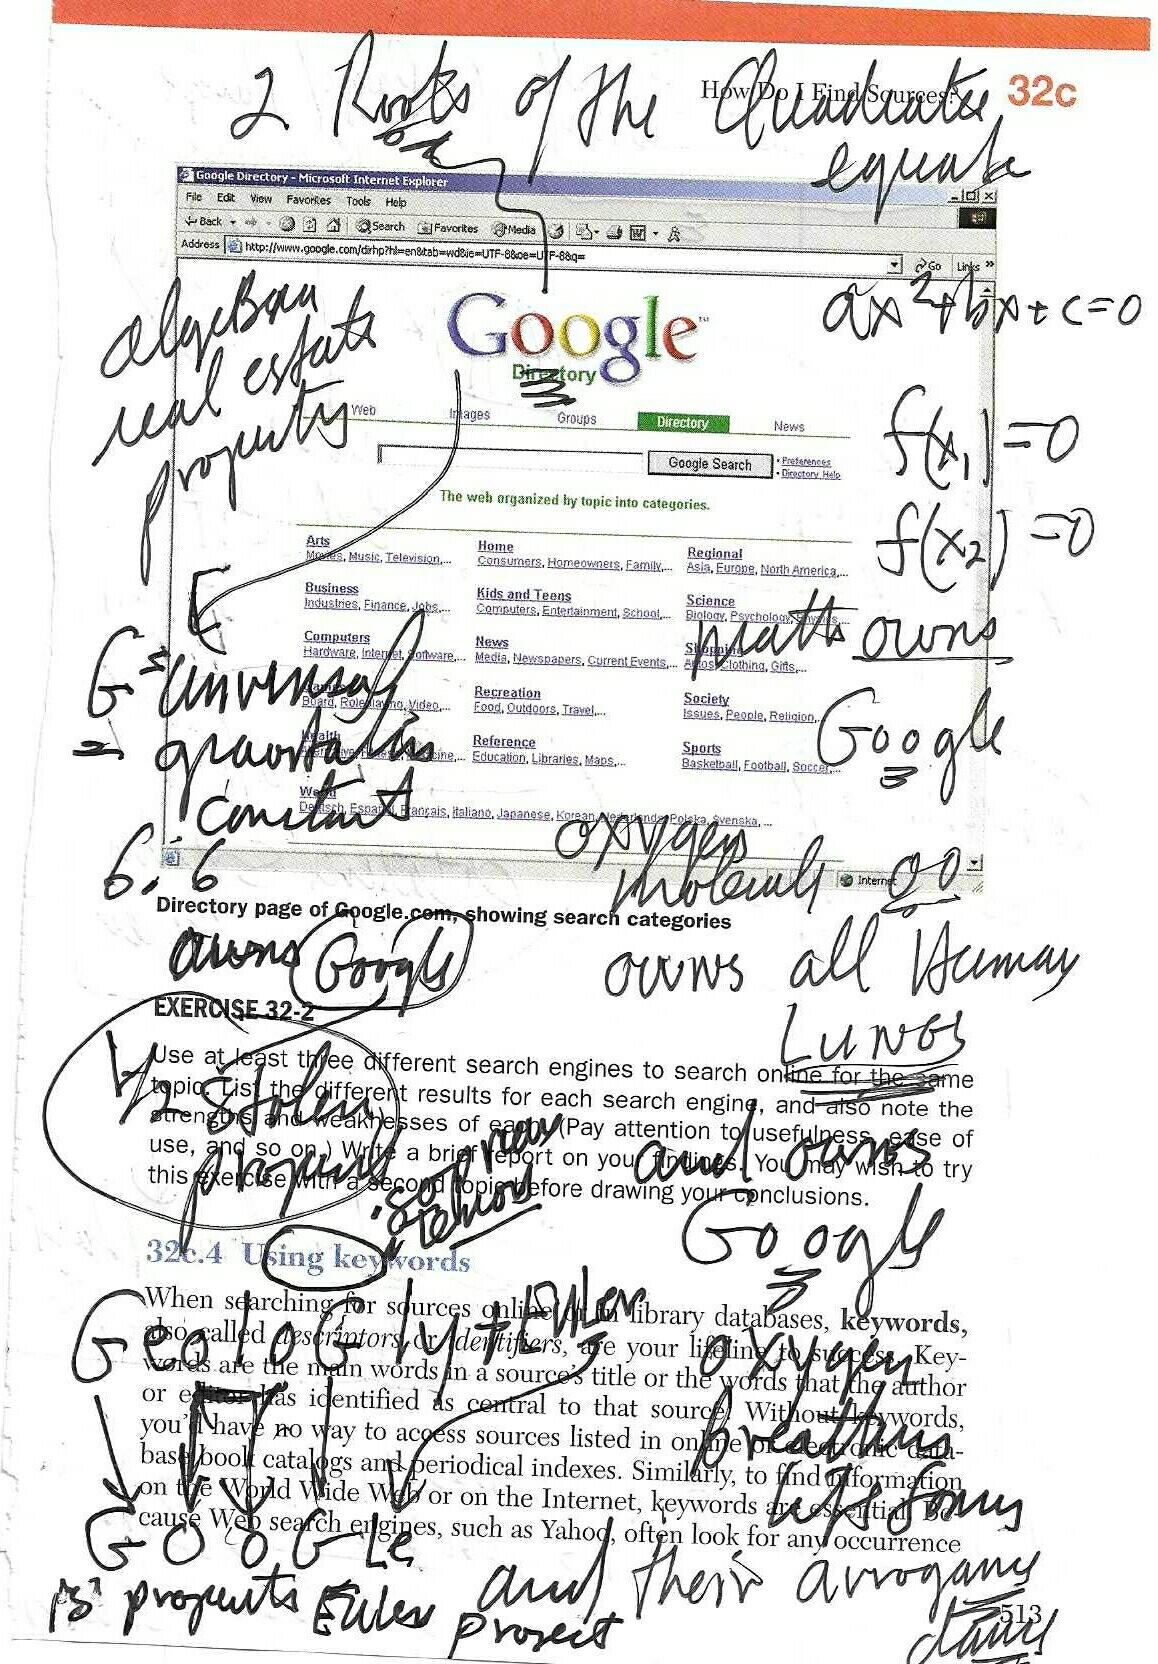 2 Roots of the Quadratic
How Do I Find Sources? 32c
Google Directory - Microsoft Internet Explorer
File Edit View Favorites Tools Help
Back Search Favorites Media
Address http://www.google.com/dirhp?hl=en&tab=wd&ie=UTF-8&oe=UTF-8&q= Go Links »
ax²+bx+c=0
Google™
Directory
real estate
Web Images Groups Directory News
f(x₁)=0
Google Search
• Preferences
• Directory Help
The web organized by topic into categories.
f(x₂)=0
Arts
Movies, Music, Television,...
Home
Consumers, Homeowners, Family,...
Regional
Asia, Europe, North America,...
Business
Industries, Finance, Jobs,...
Kids and Teens
Computers, Entertainment, School,...
Science
Biology, Psychology, Physics,...
Computers
Hardware, Internet, Software,...
News
Media, Newspapers, Current Events,...
Shopping
Autos, Clothing, Gifts,...
math owns
Google
G = universal
Board, Roleplaying, Video,...
Recreation
Food, Outdoors, Travel,...
Society
Issues, People, Religion,...
Health
Reference
Education, Libraries, Maps,...
Sports
Basketball, Football, Soccer,...
World
Deutsch, Español, Français, Italiano, Japanese, Korean, Nederlands, Polska, Svenska, ...
constant
6.6
oxygen
molecule OO
Internet
Directory page of Google.com, showing search categories
owns Google
owns all Human
LUNGS
EXERCISE 32-2
Use at least three different search engines to search online for the same
topic. List the different results for each search engine, and also note the
strengths and weaknesses of each. (Pay attention to usefulness, ease of
use, and so on.) Write a brief report on your findings. You may wish to try
this exercise with a second topic before drawing your conclusions.
stolen
and owns
Google
32c.4 Using keywords
When searching for sources online or in library databases, keywords,
also called descriptors or identifiers, are your lifeline to success. Key-
words are the main words in a source's title or the words that the author
or editor has identified as central to that source. Without keywords,
you'd have no way to access sources listed in online or electronic data-
base book catalogs and periodical indexes. Similarly, to find information
on the World Wide Web or on the Internet, keywords are essential. Be-
cause Web search engines, such as Yahoo, often look for any occurrence
GeoloGly + Euler
oxygen
breathing
GOOGLe
Euler project
and their arrogance
513